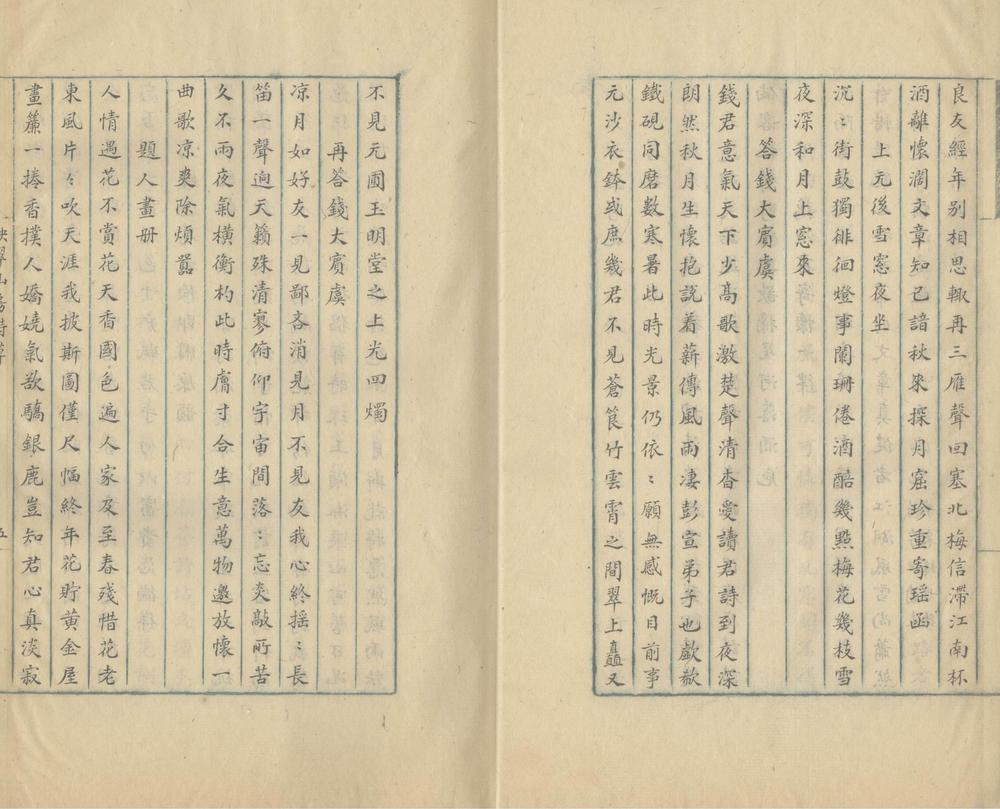 良友經年別相思輙再三雁聲回塞北梅信滯江南杯
酒離懷濶文章知己諳秋來探月窟珍重寄瑶函
上元後雪窓夜坐
沉〻街鼓獨徘徊燈事闌珊倦酒醅幾點梅花幾枝雪
夜深和月上窓來
答錢大賓虞
錢君意氣天下少高歌激楚聲清杳愛讀君詩到夜深
朗然秋月生懷抱説着薪傳風雨凄彭宣弟子也歔欷
鐵硯同磨數寒暑此時光景仍依〻願無感慨目前事
元沙衣鉢或庶幾君不見蒼筤竹雲霄之間翠上矗又
不見元圃玉明堂之上光四燭
再答錢大賓虞
凉月如好友一見鄙吝消見月不見友我心終摇〻長
笛一聲逈天籟殊清寥俯仰宇宙間落〻忘炎敲所苦
久不雨夜氣横衡杓此時膚寸合生意萬物邀放懷一
曲歌凉爽除煩囂
題人畫册
人情遇花不賞花天香國色遍人家及至春殘惜花老
東風片〻吹天涯我披斯圖僅尺幅終年花貯黄金屋
畫簾一捲香撲人嬌嬈氣欲驕銀鹿豈知君心真淡寂
山房詩草
五